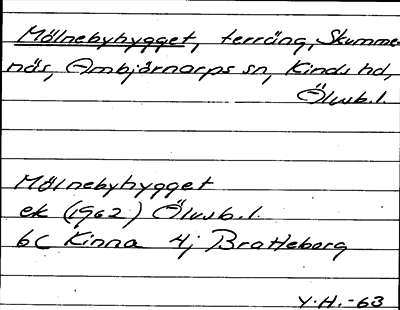 Mölnebyhygget, terräng, Skumme
näs, Ambjörnarps sn, Kinds hd,
Älvsb.l.
Mölnebyhygget
ek (1962) Älvsb.l.
6C Kinna 4j Bratteborg
Y.H.-63